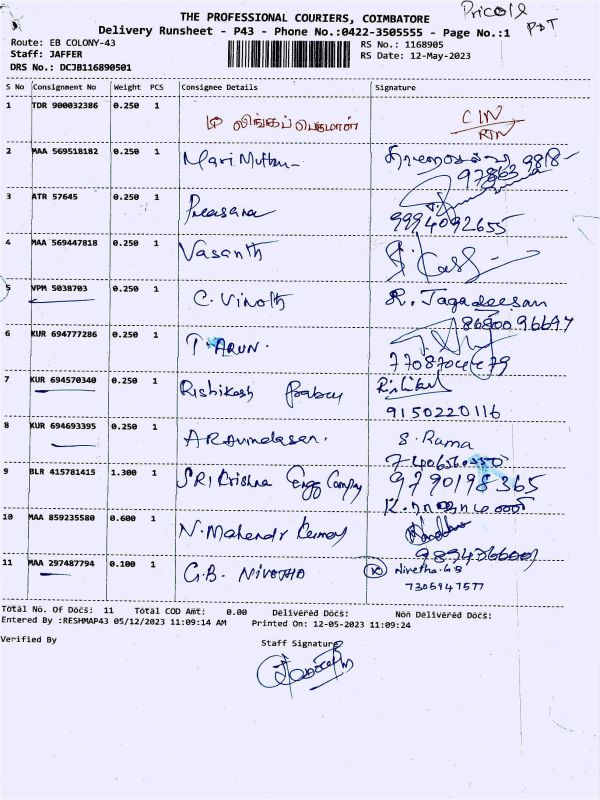 THE PROFESSIONAL COURIERS, COIMBATORE
Pricol
Delivery Runsheet - P43 - Phone No.:0422-3505555 - Page No.:1
Route: EB COLONY-43
RS No.: 1168905
Staff: JAFFER
RS Date: 12-May-2023
DRS No.: DCJB116890501
S No Consignment No Weight PCS Consignee Details Signature
1 TDR 900032386 0.250 1 லிங்கப்பெருமாள் CIN
RTN
2 MAA 569518182 0.250 1 Mari Muthu
97863 9818
3 ATR 57645 0.250 1 Prasana
9994092655
4 MAA 569447818 0.250 1 Vasanth
5 VPM 5038703 0.250 1 C. Vinoth R. Jagadeesan
8680096697
6 KUR 694777286 0.250 1 T. ARUN.
7 KUR 694570340 0.250 1 Rishikesh Prabu
9150220116
8 KUR 694693395 0.250 1 ARAvindasan. S. Rama
9 BLR 415781415 1.300 1 SRI Krishna Engg Company 9790198365
10 MAA 859235580 0.600 1 N. Mahendr Kumar
11 MAA 297487794 0.100 1 G.B. NIVETHA Nivetha.G.B
7305947577
Total No. Of Docs: 11 Total COD Amt: 0.00 Delivered Docs: Non Delivered Docs:
Entered By :RESHMAP43 05/12/2023 11:09:14 AM Printed On: 12-05-2023 11:09:24
Verified By Staff Signature